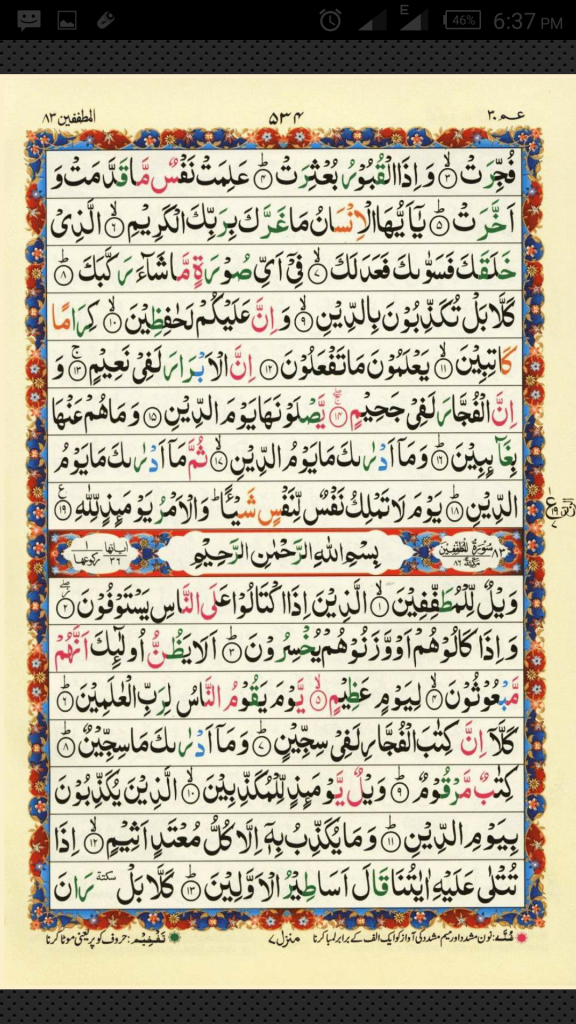 46% 6:37 PM
عـم ٣٠ ٥٣٤ المطففين ٨٣
فُجِّرَتْ ۙ﴿۳﴾ وَاِذَا الْقُبُوْرُ بُعْثِرَتْ ۙ﴿۴﴾ عَلِمَتْ نَفْسٌ مَّا قَدَّمَتْ وَ
اَخَّرَتْ ؕ﴿۵﴾ يٰۤاَيُّهَا الْاِنْسَانُ مَا غَرَّكَ بِرَبِّكَ الْكَرِيْمِ ۙ﴿۶﴾ الَّذِىْ
خَلَقَكَ فَسَوّٰٮكَ فَعَدَلَكَ ۙ﴿۷﴾ فِىْۤ اَىِّ صُوْرَةٍ مَّا شَآءَ رَكَّبَكَ ؕ﴿۸﴾
كَلَّا بَلْ تُكَذِّبُوْنَ بِالدِّيْنِ ۙ﴿۹﴾ وَاِنَّ عَلَيْكُمْ لَحٰفِظِيْنَ ۙ﴿۱۰﴾ كِرَامًا
كَاتِبِيْنَ ۙ﴿۱۱﴾ يَعْلَمُوْنَ مَا تَفْعَلُوْنَ ﴿۱۲﴾ اِنَّ الْاَبْرَارَ لَفِىْ نَعِيْمٍ ۚ﴿۱۳﴾ وَ
اِنَّ الْفُجَّارَ لَفِىْ جَحِيْمٍ ۚۖ﴿۱۴﴾ يَّصْلَوْنَهَا يَوْمَ الدِّيْنِ ﴿۱۵﴾ وَمَا هُمْ عَنْهَا
بِغَآٮِٕبِيْنَ ؕ﴿۱۶﴾ وَمَاۤ اَدْرٰٮكَ مَا يَوْمُ الدِّيْنِ ۙ﴿۱۷﴾ ثُمَّ مَاۤ اَدْرٰٮكَ مَا يَوْمُ
الدِّيْنِ ؕ﴿۱۸﴾ يَوْمَ لَا تَمْلِكُ نَفْسٌ لِّنَفْسٍ شَيْـًٔا ؕ وَالْاَمْرُ يَوْمَٮِٕذٍ لِّلّٰهِ ﴿۱۹﴾
٨٣ سُوْرَةُ الْمُطَفِّفِيْنَ مَكِّيَّةٌ ٨٦ بِسْمِ اللّٰهِ الرَّحْمٰنِ الرَّحِيْمِ اٰيَاتُهَا ٣٦ رُكُوْعُهَا ١
وَيْلٌ لِّلْمُطَفِّفِيْنَ ۙ﴿۱﴾ الَّذِيْنَ اِذَا اكْتَالُوْا عَلَى النَّاسِ يَسْتَوْفُوْنَ ۖ﴿۲﴾
وَاِذَا كَالُوْهُمْ اَوْ وَّزَنُوْهُمْ يُخْسِرُوْنَ ؕ﴿۳﴾ اَلَا يَظُنُّ اُولٰٓٮِٕكَ اَنَّهُمْ
مَّبْعُوْثُوْنَ ۙ﴿۴﴾ لِيَوْمٍ عَظِيْمٍ ۙ﴿۵﴾ يَّوْمَ يَقُوْمُ النَّاسُ لِرَبِّ الْعٰلَمِيْنَ ؕ﴿۶﴾
كَلَّاۤ اِنَّ كِتٰبَ الْفُجَّارِ لَفِىْ سِجِّيْنٍ ؕ﴿۷﴾ وَمَاۤ اَدْرٰٮكَ مَا سِجِّيْنٌ ؕ﴿۸﴾
كِتٰبٌ مَّرْقُوْمٌ ؕ﴿۹﴾ وَيْلٌ يَّوْمَٮِٕذٍ لِّلْمُكَذِّبِيْنَ ۙ﴿۱۰﴾ الَّذِيْنَ يُكَذِّبُوْنَ
بِيَوْمِ الدِّيْنِ ؕ﴿۱۱﴾ وَمَا يُكَذِّبُ بِهٖۤ اِلَّا كُلُّ مُعْتَدٍ اَثِيْمٍ ۙ﴿۱۲﴾ اِذَا
تُتْلٰى عَلَيْهِ اٰيٰتُنَا قَالَ اَسَاطِيْرُ الْاَوَّلِيْنَ ؕ﴿۱۳﴾ كَلَّا بَلْ سكتة رَانَ
غُنَّه: نون مشدد اور میم مشدد کی آواز کو ایک الف کے برابر لمبا کرنا منزل ٧ تَفْخِيْم: حروف کو پُر یعنی موٹا کرنا